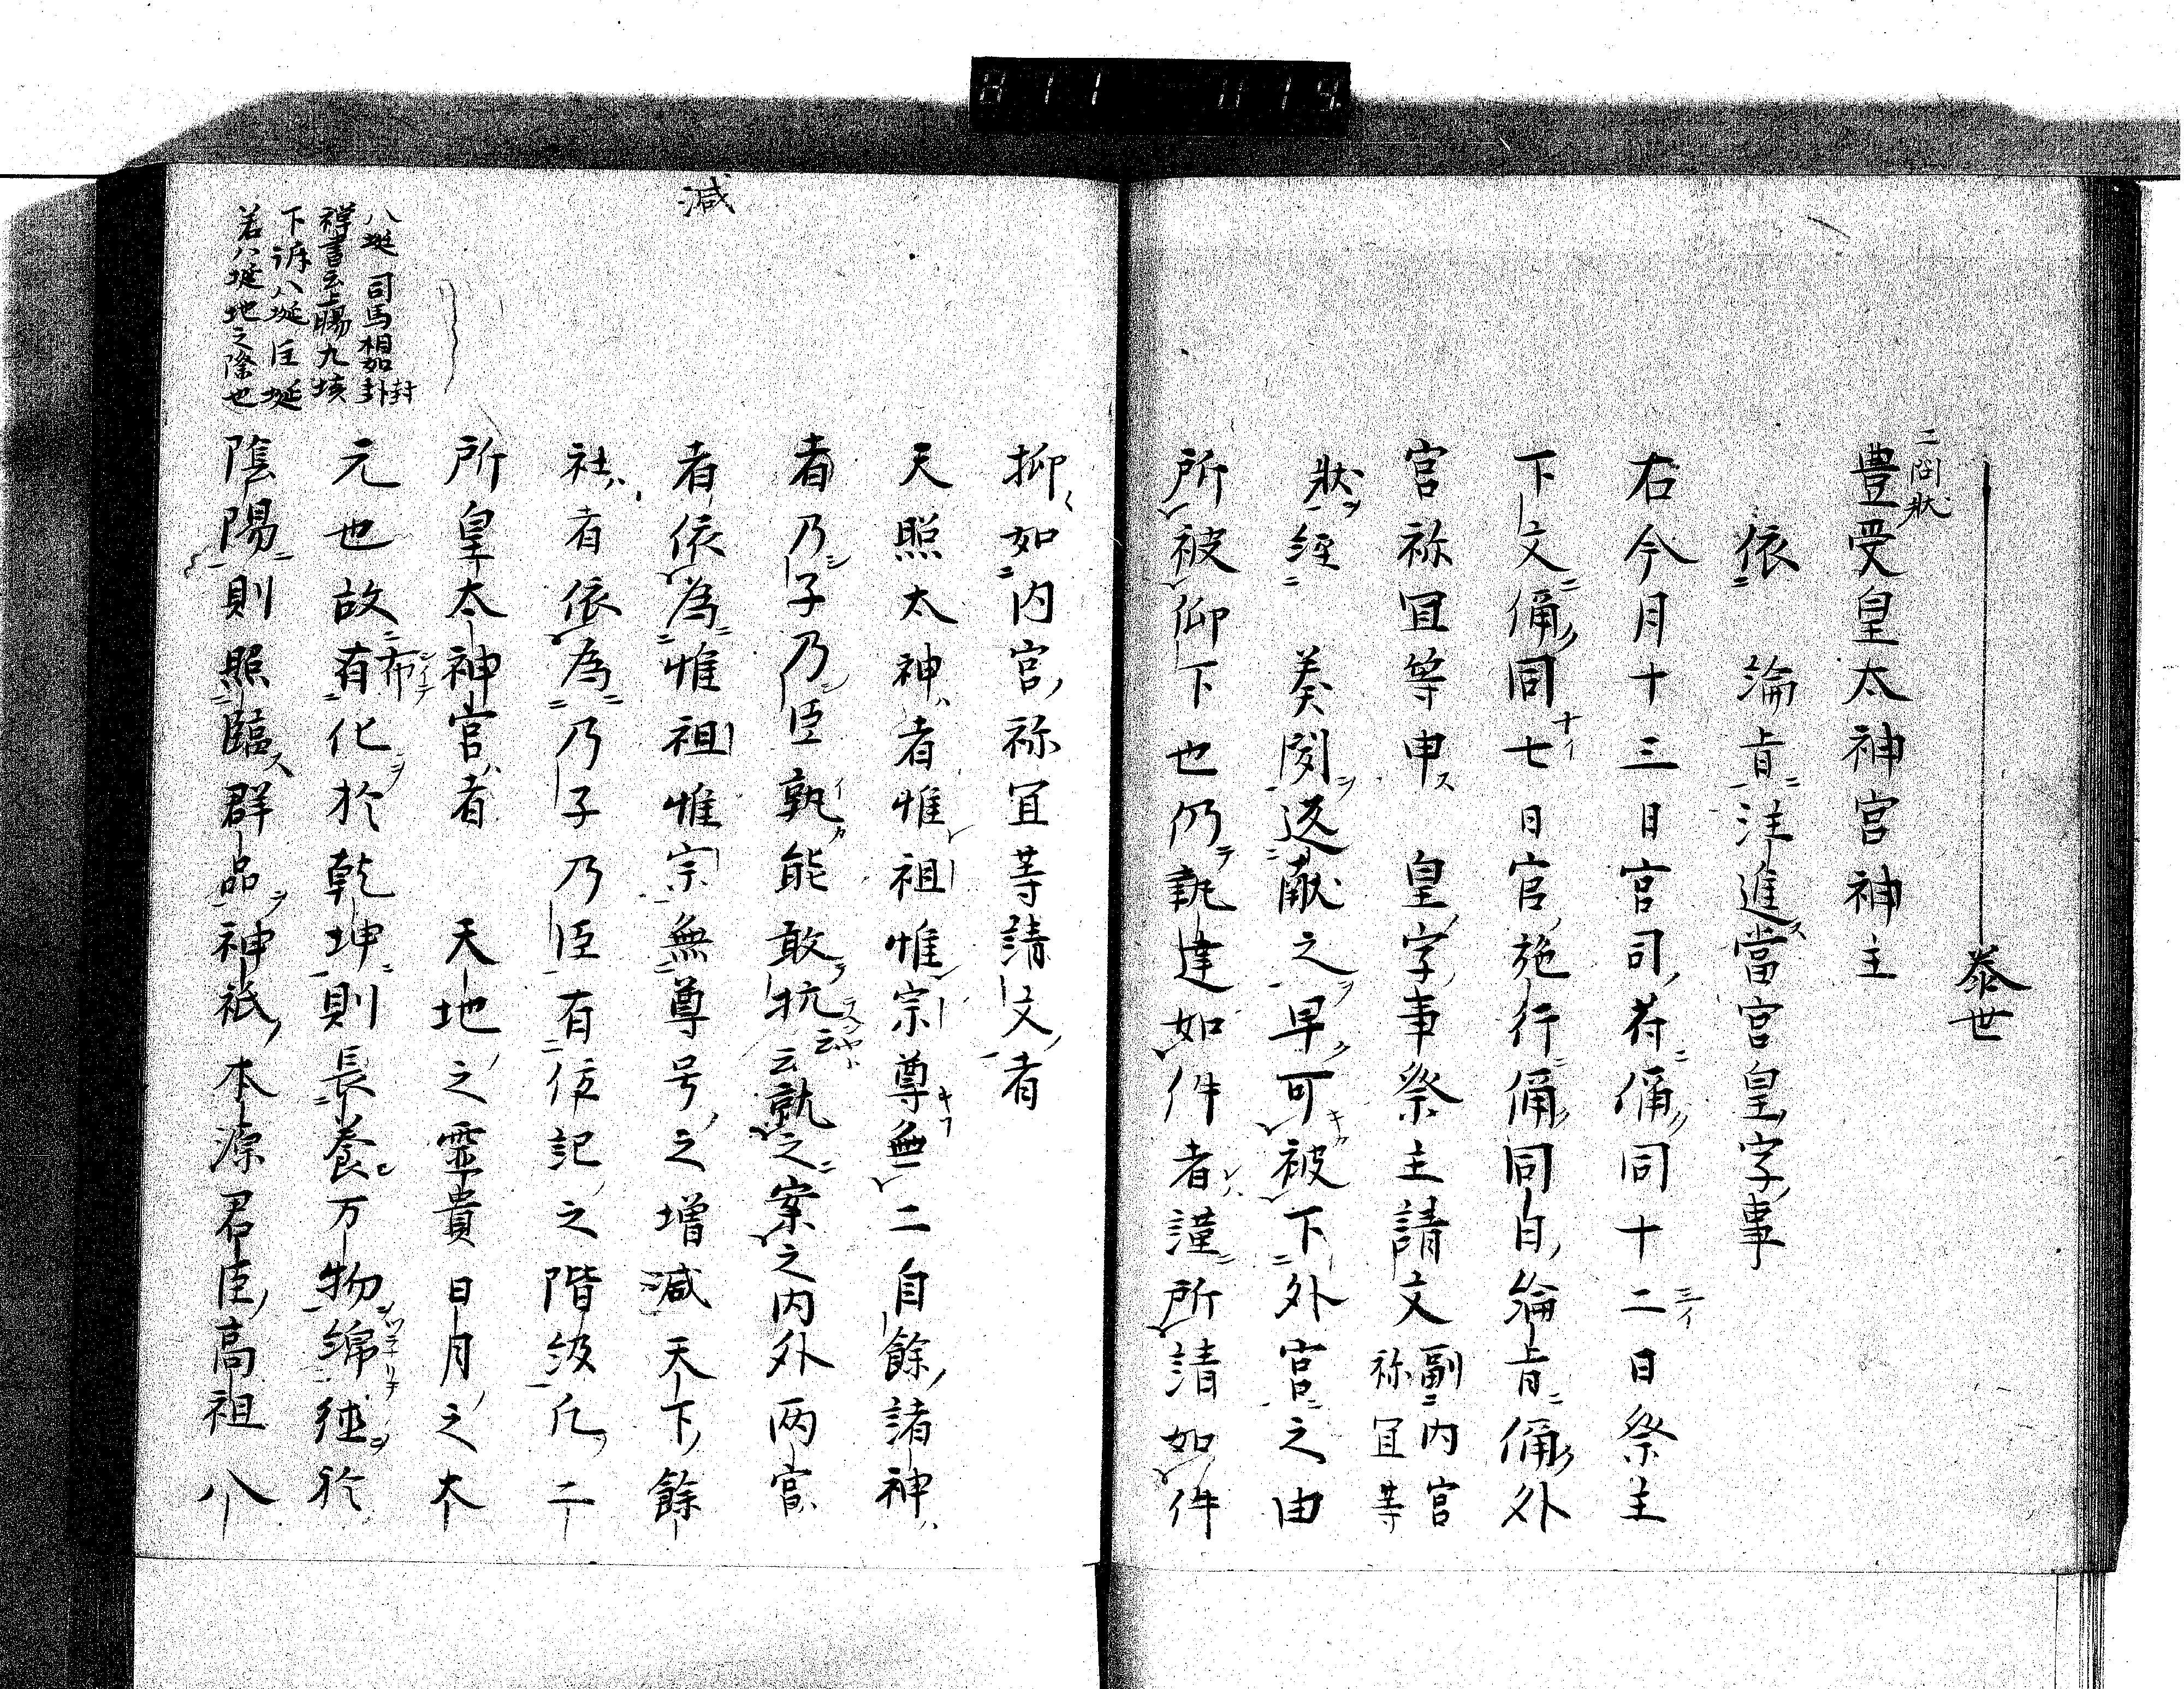 泰世
二問状
豊受皇太神宮神主
依　淪旨注進當宮皇字事
右今月十三日宮司符偁同十二日祭主
下文偁同七日官施行偁同日綸旨偁外
宮祢宜等申　皇字事祭主請文副内官祢宜等
状經　奏聞返献之早可被下外宮之由
所被仰下也仍執達如件者謹所請如件
抑如内宮祢宜等請文者
天照太神者惟祖惟宗尊無二自餘諸神
者乃子乃臣孰能敢抗云孰之案之内外両宮
者依為惟祖惟宗無尊号之増減天下餘
社者依為乃子乃臣有位記之階級凡二
所皇太神宮者　天地之霊貴日月之太
元也故有化於乾坤則長養万物綿徳於
陰陽則照臨群品神祇本源君臣高祖八
減
八埏司馬相如封
禅書云上暢九垓
下泝八埏注埏
若八埏地之際也